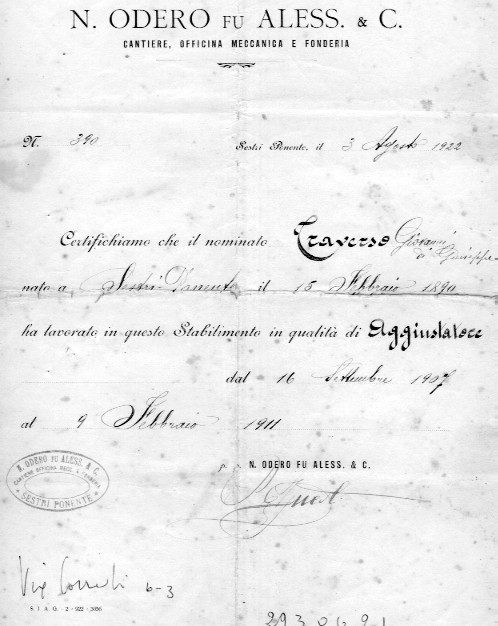 N. ODERO FU ALESS. & C.
CANTIERE, OFFICINA MECCANICA E FONDERIA
N. 390 Sestri Ponente, il 3 Agosto 1922
Certifichiamo che il nominato Traverso Giovanni
di Giuseppe
nato a Sestri Ponente il 15 Febbraio 1890
ha lavorato in questo Stabilimento in qualità di Aggiustatore
dal 16 Settembre 1907
al 9 Febbraio 1911
p. N. ODERO FU ALESS. & C.
N. ODERO FU ALESS. & C.
CANTIERE OFFICINA MECC. & FONDERIA
SESTRI PONENTE
Via 6-3
S. I. A. G. 2-922-3000